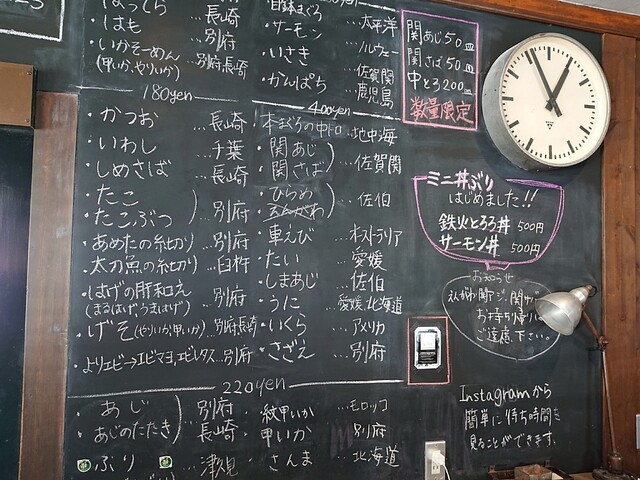 はも ...別府
いかそーめん
(甲いか,やりいか) ...別府,長崎
180yen
・かつお ...長崎
・いわし ...千葉
・しめさば 長崎
・たこ
・たこぶつ ...別府
・あめたの糸切り ...別府
・太刀魚の糸切り ...臼杵
・はげの肝和え
(まるはげ,うまはげ) ...別府
・げそ(やりいか,甲いか) ...別府,長崎
・よりエビ→エビマヨ,エビレタス...別府
220yen
・あじ
・あじのたたき 別府
長崎
ぶり 津久見
自鉢まぐろ ...太平洋
・サーモン ...ノルウェー
・いさき ...佐賀関
・かんぱち ...鹿児島
400yen
本まぐろの中トロ ...地中海
・関あじ
・関さば ...佐賀関
・ひらめ
...佐伯
・車えび ...オーストラリア
・たい ...愛媛
・しまあじ ...佐伯
・うに ...愛媛,北海道
・いくら ...アメリカ
・さざえ ...別府
・紋甲いか ...モロッコ
・甲いか ...別府
・さんま ...北海道
関あじ50皿
関さば50皿
中とろ200皿
数量限定
ミニ丼ぶり
はじめました!!
鉄火とろろ丼 500円
サーモン丼 500円
お知らせ
えんがわ 関アジ、関サバ
お持ち帰り
ご遠慮下さい。
Instagramから
簡単に待ち時間を
見ることができます。